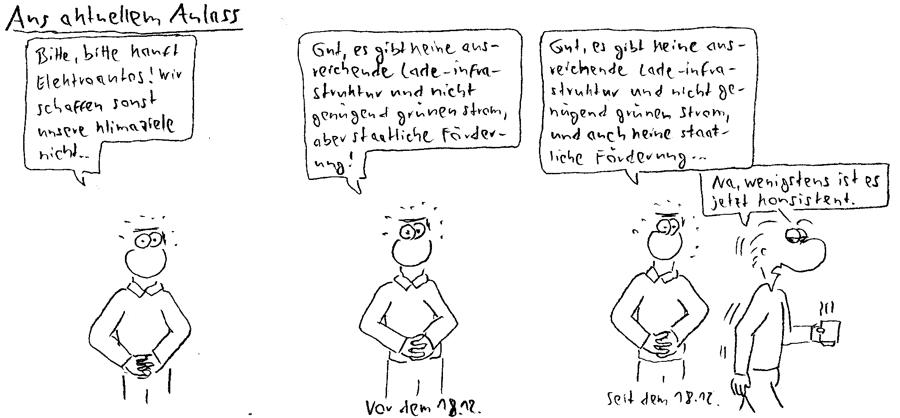 Aus aktuellem Anlass
Bitte, bitte kauft
Elektroautos! Wir
schaffen sonst
unsere Klimaziele
nicht...
Gut, es gibt keine aus-
reichende Lade-infra-
struktur und nicht
genügend grünen Strom,
aber staatliche Förder-
ung!
Vor dem 18.12.
Gut, es gibt keine aus-
reichende Lade-infra-
struktur und nicht ge-
nügend grünen Strom,
und auch keine staat-
liche Förderung...
Na, wenigstens ist es
jetzt konsistent.
Seit dem 18.12.